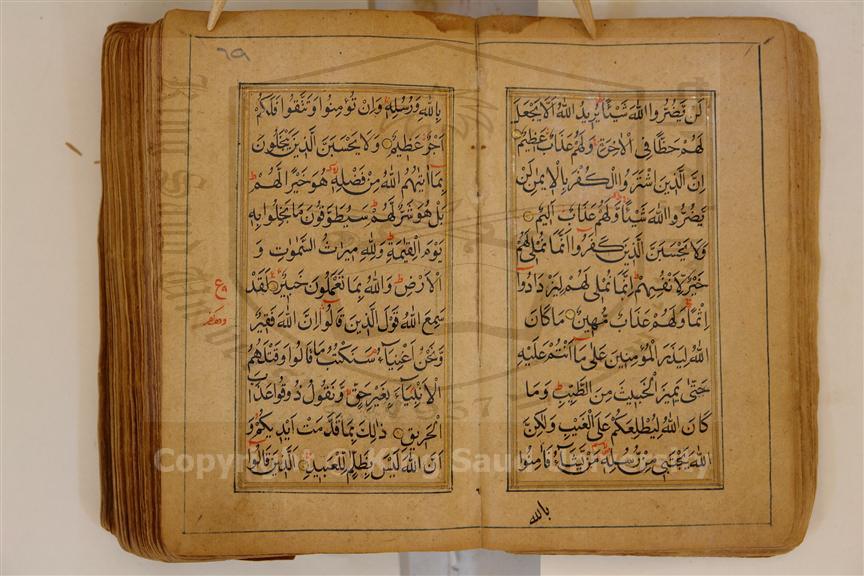 لَن يَضُرُّوا اللهَ شَيْئًا يُرِيدُ اللهُ اَلَّا يَجْعَلَ
لَهُمْ حَظًّا فِى الْاٰخِرَةِ وَلَهُمْ عَذَابٌ عَظِيمٌ
اِنَّ الَّذِينَ اشْتَرَوُا الْكُفْرَ بِالْاِيمٰنِ لَنْ
يَضُرُّوا اللهَ شَيْئًا وَلَهُمْ عَذَابٌ اَلِيمٌ
وَلَا يَحْسَبَنَّ الَّذِينَ كَفَرُوا اَنَّمَا نُمْلِى لَهُمْ
خَيْرٌ لِاَنْفُسِهِمْ اِنَّمَا نُمْلِى لَهُمْ لِيَزْدَادُوا
اِثْمًا وَلَهُمْ عَذَابٌ مُهِينٌ مَا كَانَ
اللهُ لِيَذَرَ الْمُؤْمِنِينَ عَلٰى مَا اَنْتُمْ عَلَيْهِ
حَتّٰى يَمِيزَ الْخَبِيثَ مِنَ الطَّيِّبِ وَمَا
كَانَ اللهُ لِيُطْلِعَكُمْ عَلَى الْغَيْبِ وَلٰكِنَّ
اللهَ يَجْتَبِى مِنْ رُسُلِهِ مَنْ يَشَاءُ فَاٰمِنُوا
بالله
٦٩
بِاللهِ وَرُسُلِهِ وَاِنْ تُؤْمِنُوا وَتَتَّقُوا فَلَكُمْ
اَجْرٌ عَظِيمٌ وَلَا يَحْسَبَنَّ الَّذِينَ يَبْخَلُونَ
بِمَا اٰتٰيهُمُ اللهُ مِنْ فَضْلِهِ هُوَ خَيْرًا لَهُمْ
بَلْ هُوَ شَرٌّ لَهُمْ سَيُطَوَّقُونَ مَا بَخِلُوا بِهِ
يَوْمَ الْقِيٰمَةِ وَلِلّٰهِ مِيرَاثُ السَّمٰوٰتِ وَ
الْاَرْضِ وَاللهُ بِمَا تَعْمَلُونَ خَبِيرٌ لَقَدْ
سَمِعَ اللهُ قَوْلَ الَّذِينَ قَالُوا اِنَّ اللهَ فَقِيرٌ
وَنَحْنُ اَغْنِيَاءُ سَنَكْتُبُ مَا قَالُوا وَقَتْلَهُمُ
الْاَنْبِيَاءَ بِغَيْرِ حَقٍّ وَنَقُولُ ذُوقُوا عَذَابَ
الْحَرِيقِ ذٰلِكَ بِمَا قَدَّمَتْ اَيْدِيكُمْ وَ
اَنَّ اللهَ لَيْسَ بِظَلَّامٍ لِلْعَبِيدِ الَّذِينَ قَالُوا
Copyright © King Saud University
1957